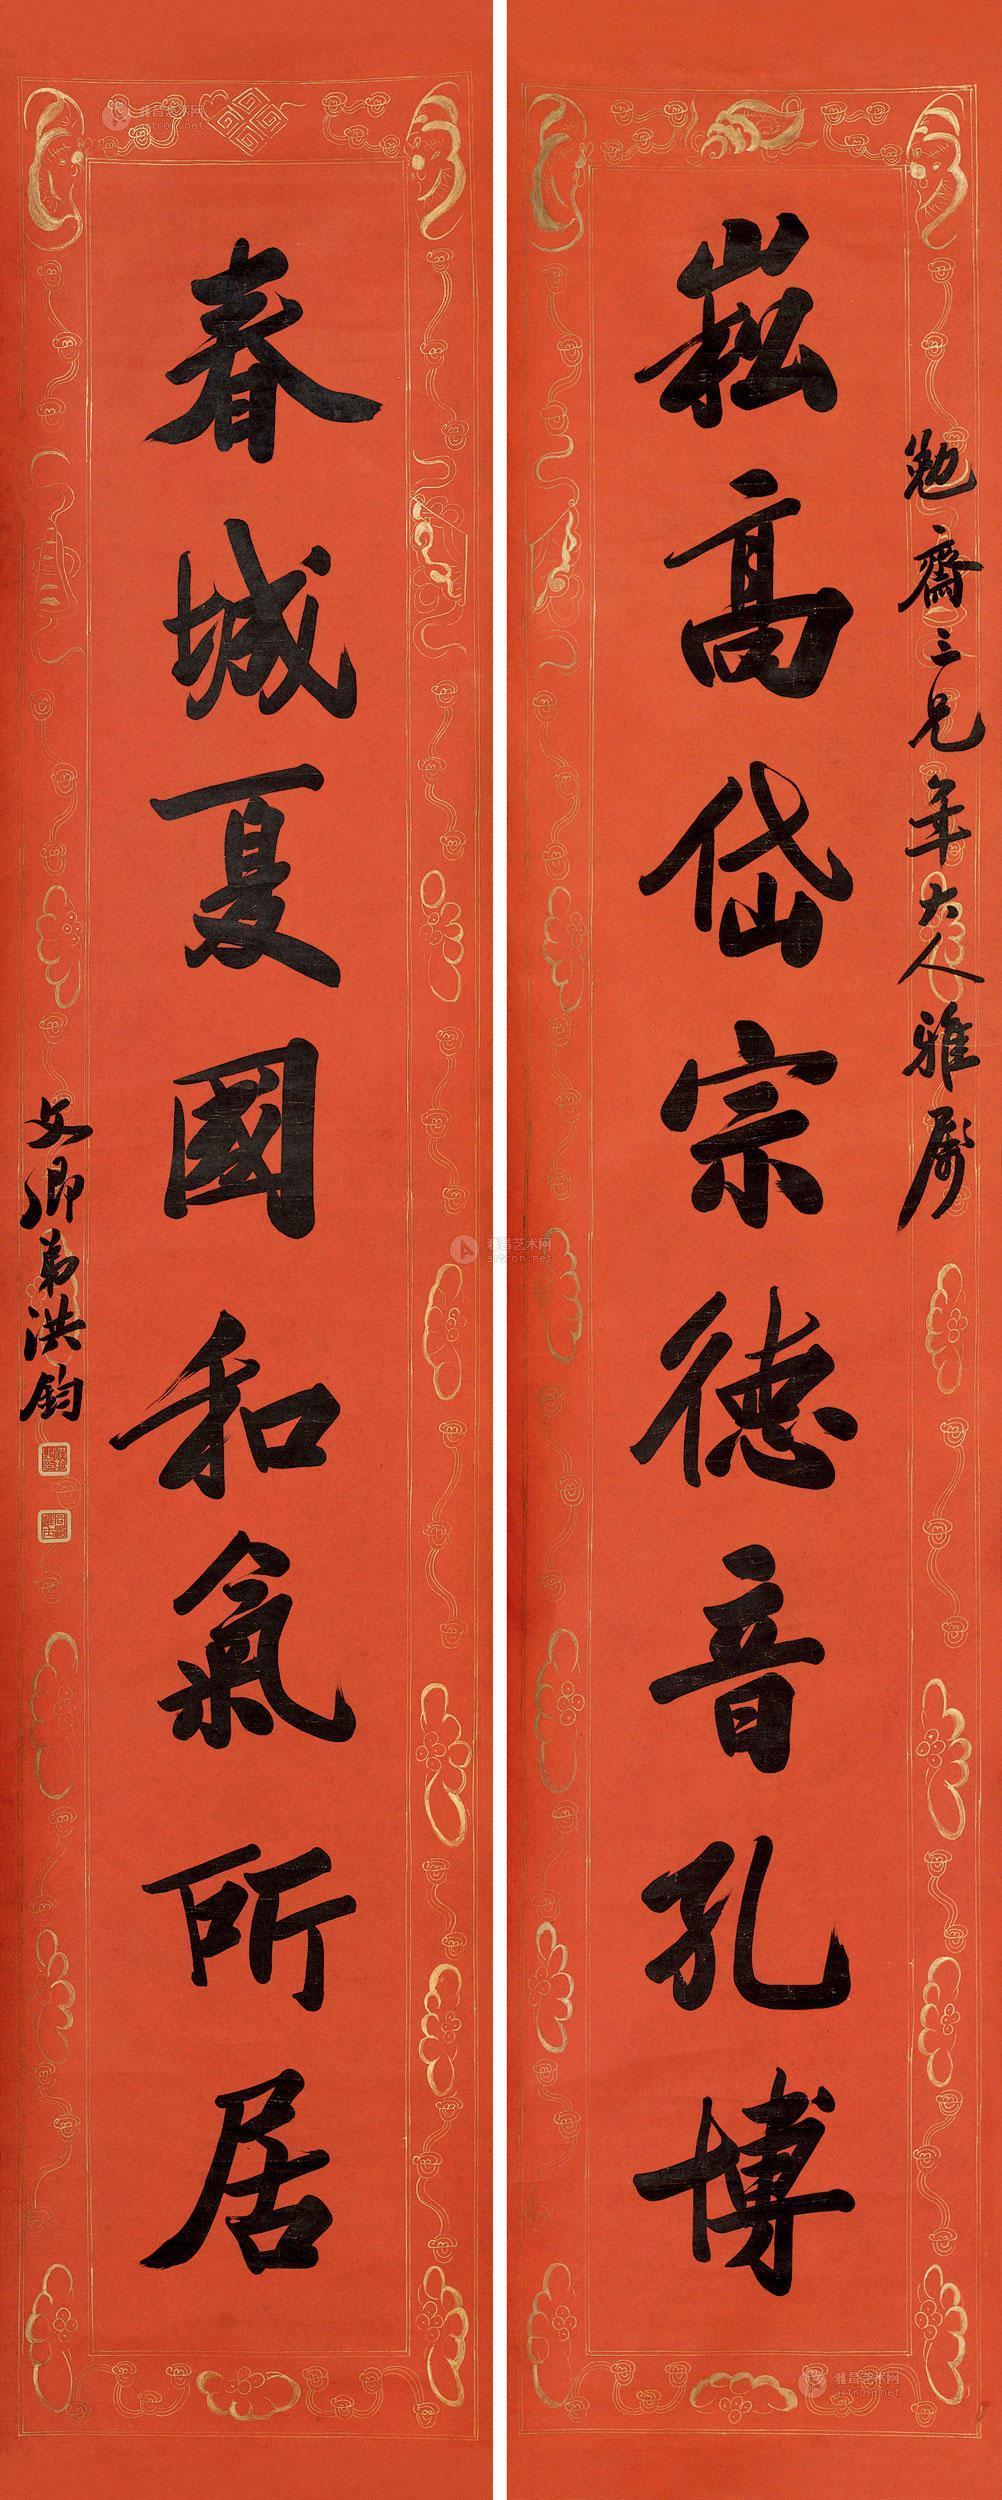 勉齋三兄年大人雅屬
崧高岱宗德音孔博
春城夏國和氣所居
文卿弟洪鈞
雅昌艺术网
artron.net